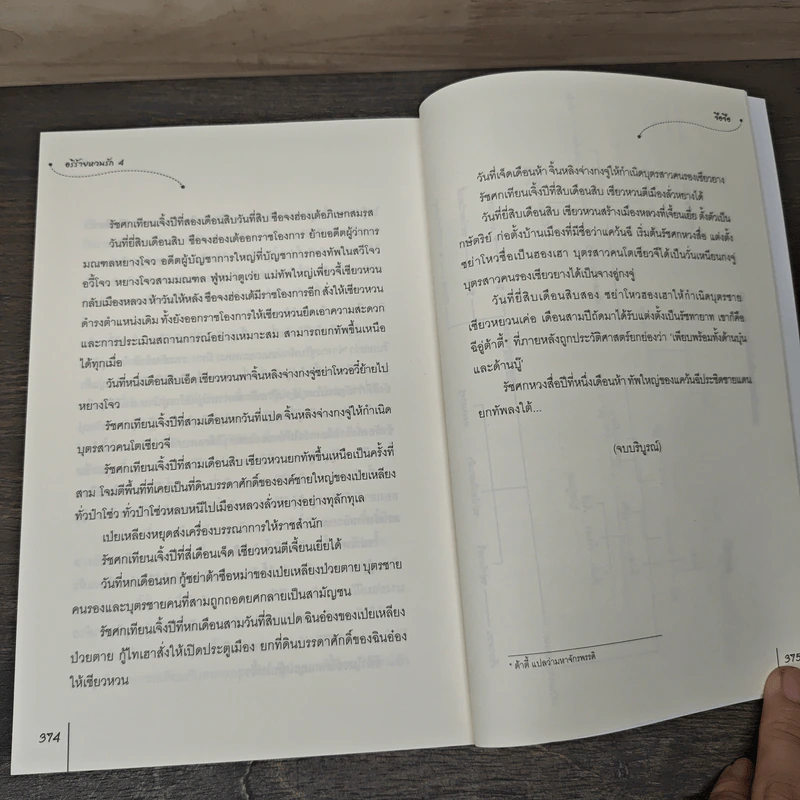 อริร้ายหวนรัก 4
รัชศกเทียนเจิ้งปีที่สองเดือนสิบวันที่สิบ ซือจงฮ่องเต้อภิเษกสมรส
วันที่ยี่สิบเดือนสิบ ซือจงฮ่องเต้ออกราชโองการ ย้ายอดีตผู้ว่าการ
มณฑลหยางโจว อดีตผู้บัญชาการใหญ่ที่บัญชาการกองทัพในสวีโจว
อวี้โจว หยางโจวสามมณฑล ฟู่หม่าตูเว่ย แม่ทัพใหญ่เพี่ยวจี้เซียวหวน
กลับเมืองหลวง ห้าวันให้หลัง ซือจงฮ่องเต้มีราชโองการอีก สั่งให้เซียวหวน
ดำรงตำแหน่งเดิม ทั้งยังออกราชโองการให้เซียวหวนยึดเอาความสะดวก
และการประเมินสถานการณ์อย่างเหมาะสม สามารถยกทัพขึ้นเหนือ
ได้ทุกเมื่อ
วันที่หนึ่งเดือนสิบเอ็ด เซียวหวนพาจิ้นหลิงจ่างกงจู่ซย่าโหวอวี้ย้ายไป
หยางโจว
รัชศกเทียนเจิ้งปีที่สามเดือนหกวันที่แปด จิ้นหลิงจ่างกงจู่ให้กำเนิด
บุตรสาวคนโตเซียวจี
รัชศกเทียนเจิ้งปีที่สามเดือนสิบ เซียวหวนยกทัพขึ้นเหนือเป็นครั้งที่
สาม โจมตีพื้นที่ที่เคยเป็นที่ดินบรรดาศักดิ์ขององค์ชายใหญ่ของเป่ยเหลียง
ทั่วป๋าโช่ว ทั่วป๋าโช่วหลบหนีไปเมืองหลวงลั่วหยางอย่างทุลักทุเล
เป่ยเหลียงหยุดส่งเครื่องบรรณาการให้ราชสำนัก
รัชศกเทียนเจิ้งปีที่สี่เดือนเจ็ด เซียวหวนตีเจี้ยนเยี่ยได้
วันที่หกเดือนหก กู้ซย่าต้าซือหม่าของเป่ยเหลียงป่วยตาย บุตรชาย
คนรองและบุตรชายคนที่สามถูกถอดยศกลายเป็นสามัญชน
รัชศกเทียนเจิ้งปีที่หกเดือนสามวันที่สิบแปด ฉินอ๋องของเป่ยเหลียง
ป่วยตาย กู้ไทเฮาสั่งให้เปิดประตูเมือง ยกที่ดินบรรดาศักดิ์ของฉินอ๋อง
ให้เซียวหวน
374
จือจือ
วันที่เจ็ดเดือนห้า จิ้นหลิงจ่างกงจู่ให้กำเนิดบุตรสาวคนรองเซียวยาง
รัชศกเทียนเจิ้งปีที่สิบเดือนสิบ เซียวหวนตีเมืองลั่วหยางได้
วันที่ยี่สิบเดือนสิบ เซียวหวนสร้างเมืองหลวงที่เจี้ยนเยี่ย ตั้งตัวเป็น
กษัตริย์ ก่อตั้งบ้านเมืองที่มีชื่อว่าแคว้นฉี เริ่มต้นรัชศกหวงสื่อ แต่งตั้ง
ซย่าโหวชื่อเป็นฮองเฮา บุตรสาวคนโตเซียวจีได้เป็นวั่นเหนียนกงจู่
บุตรสาวคนรองเซียวยางได้เป็นจางอู่กงจู่
วันที่ยี่สิบเดือนสิบสอง ซย่าโหวฮองเฮาให้กำเนิดบุตรชาย
เซียวหยวนเค่อ เดือนสามปีถัดมาได้รับแต่งตั้งเป็นรัชทายาท เขาก็คือ
ฉีอู่ต้าตี้* ที่ภายหลังถูกประวัติศาสตร์ยกย่องว่า 'เพียบพร้อมทั้งด้านบุ๋น
และด้านบู๊'
รัชศกหวงสื่อปีที่หนึ่งเดือนห้า ทัพใหญ่ของแคว้นฉีประชิดชายแดน
ยกทัพลงใต้...
(จบบริบูรณ์)
* ต้าตี้ แปลว่ามหาจักรพรรดิ
375